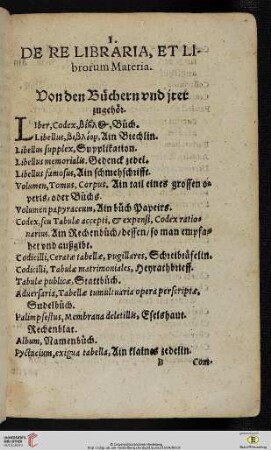 I.
DE RE LIBRARIA, ET LI-
brorum Materia.
Von den Büchern vnd jrer
zugehör.
LIber, Codex, βίβλος, Büch.
Libellus, βιβλίον, Ain Biechlin.
Libellus supplex, Supplikation.
Libellus memorialis, Gedenck zedel.
Libellus famosus, Ain schmehschrifft.
Volumen, Tomus, Corpus, Ain tail eines grossen o-
peris, oder Büchs.
Volumen papyraceum, Ain büch Papeirs.
Codex, seu Tabulæ accepti, & expensi, Codex ratio-
narius. Ain Rechenbüch/ dessen/ so man empfa-
het vnd außgibt.
Codicilli, Ceratæ tabellæ, pugillares, Schreibtäfelin.
Codicilli, Tabulæ matrimoniales, Heyrathbrieff.
Tabulæ publicæ, Stattbüch.
Aduersaria, Tabellæ tumultuaria opera perscriptæ,
Sudelbüch.
Palimpsestus, Membrana deletilis, Eselshaut.
Rechenblat.
Album, Namenbüch.
Pyctacium, exigua tabella, Ain klaines zedelin.
B Com-
UNIVERSITÄTS-
BIBLIOTHEK
HEIDELBERG
© Universitätsbibliothek Heidelberg